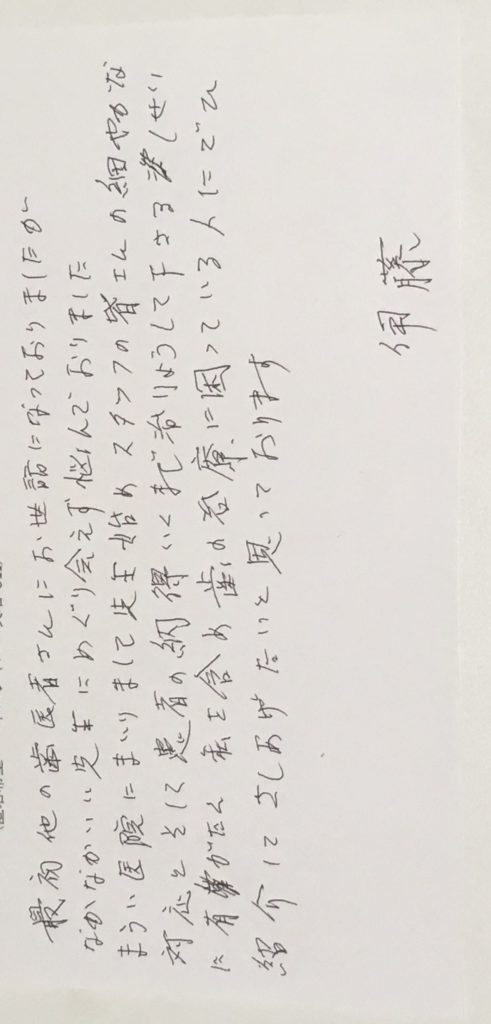 最初他の歯医者さんにお世話になっておりましたが
なかなかいい先生にめぐり会えず悩んでおりました
まうい医院にまいりまして先生始めスタッフの皆さんの細やかな
対応とそして患者の納得いくまで治りょうして下さるしせい
に有がたく 私を含め歯の治療に困っている人にぜひ
紹介してさしあげたいと思っております
伊藤